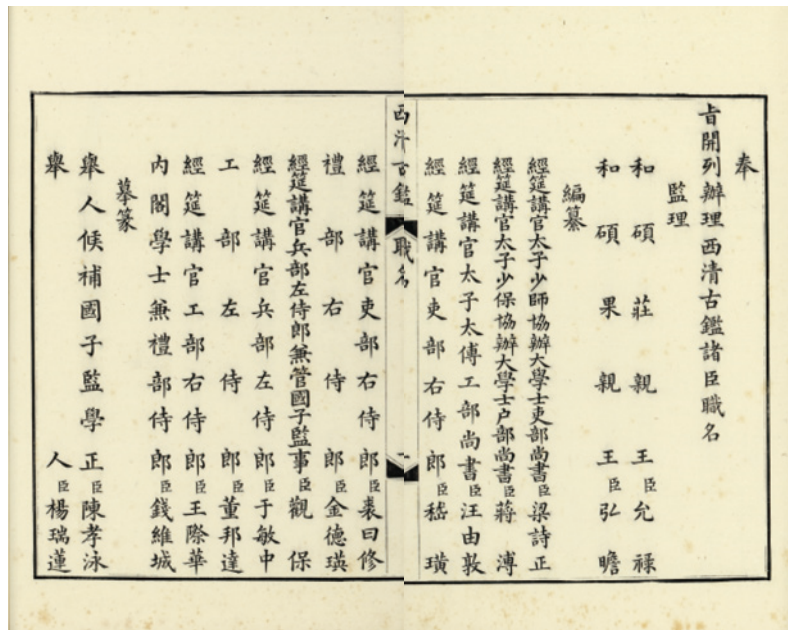 奉
旨開列辦理西清古鑑諸臣職名
監理
和碩莊親王臣允祿
和碩果親王臣弘瞻
編纂
經筵講官太子少師協辦大學士吏部尚書臣梁詩正
經筵講官太子少保協辦大學士户部尚書臣蔣溥
經筵講官太子太傅工部尚書臣汪由敦
經筵講官吏部右侍郎臣嵇璜
西清古鑑 職名 一
經筵講官吏部右侍郎臣裘曰修
禮部右侍郎臣金德瑛
經筵講官兵部左侍郎兼管國子監事臣觀保
經筵講官兵部左侍郎臣于敏中
工部左侍郎臣董邦達
經筵講官工部右侍郎臣王際華
內閣學士兼禮部侍郎臣錢維城
摹篆
舉人候補國子監學正臣陳孝泳
舉人臣楊瑞蓮